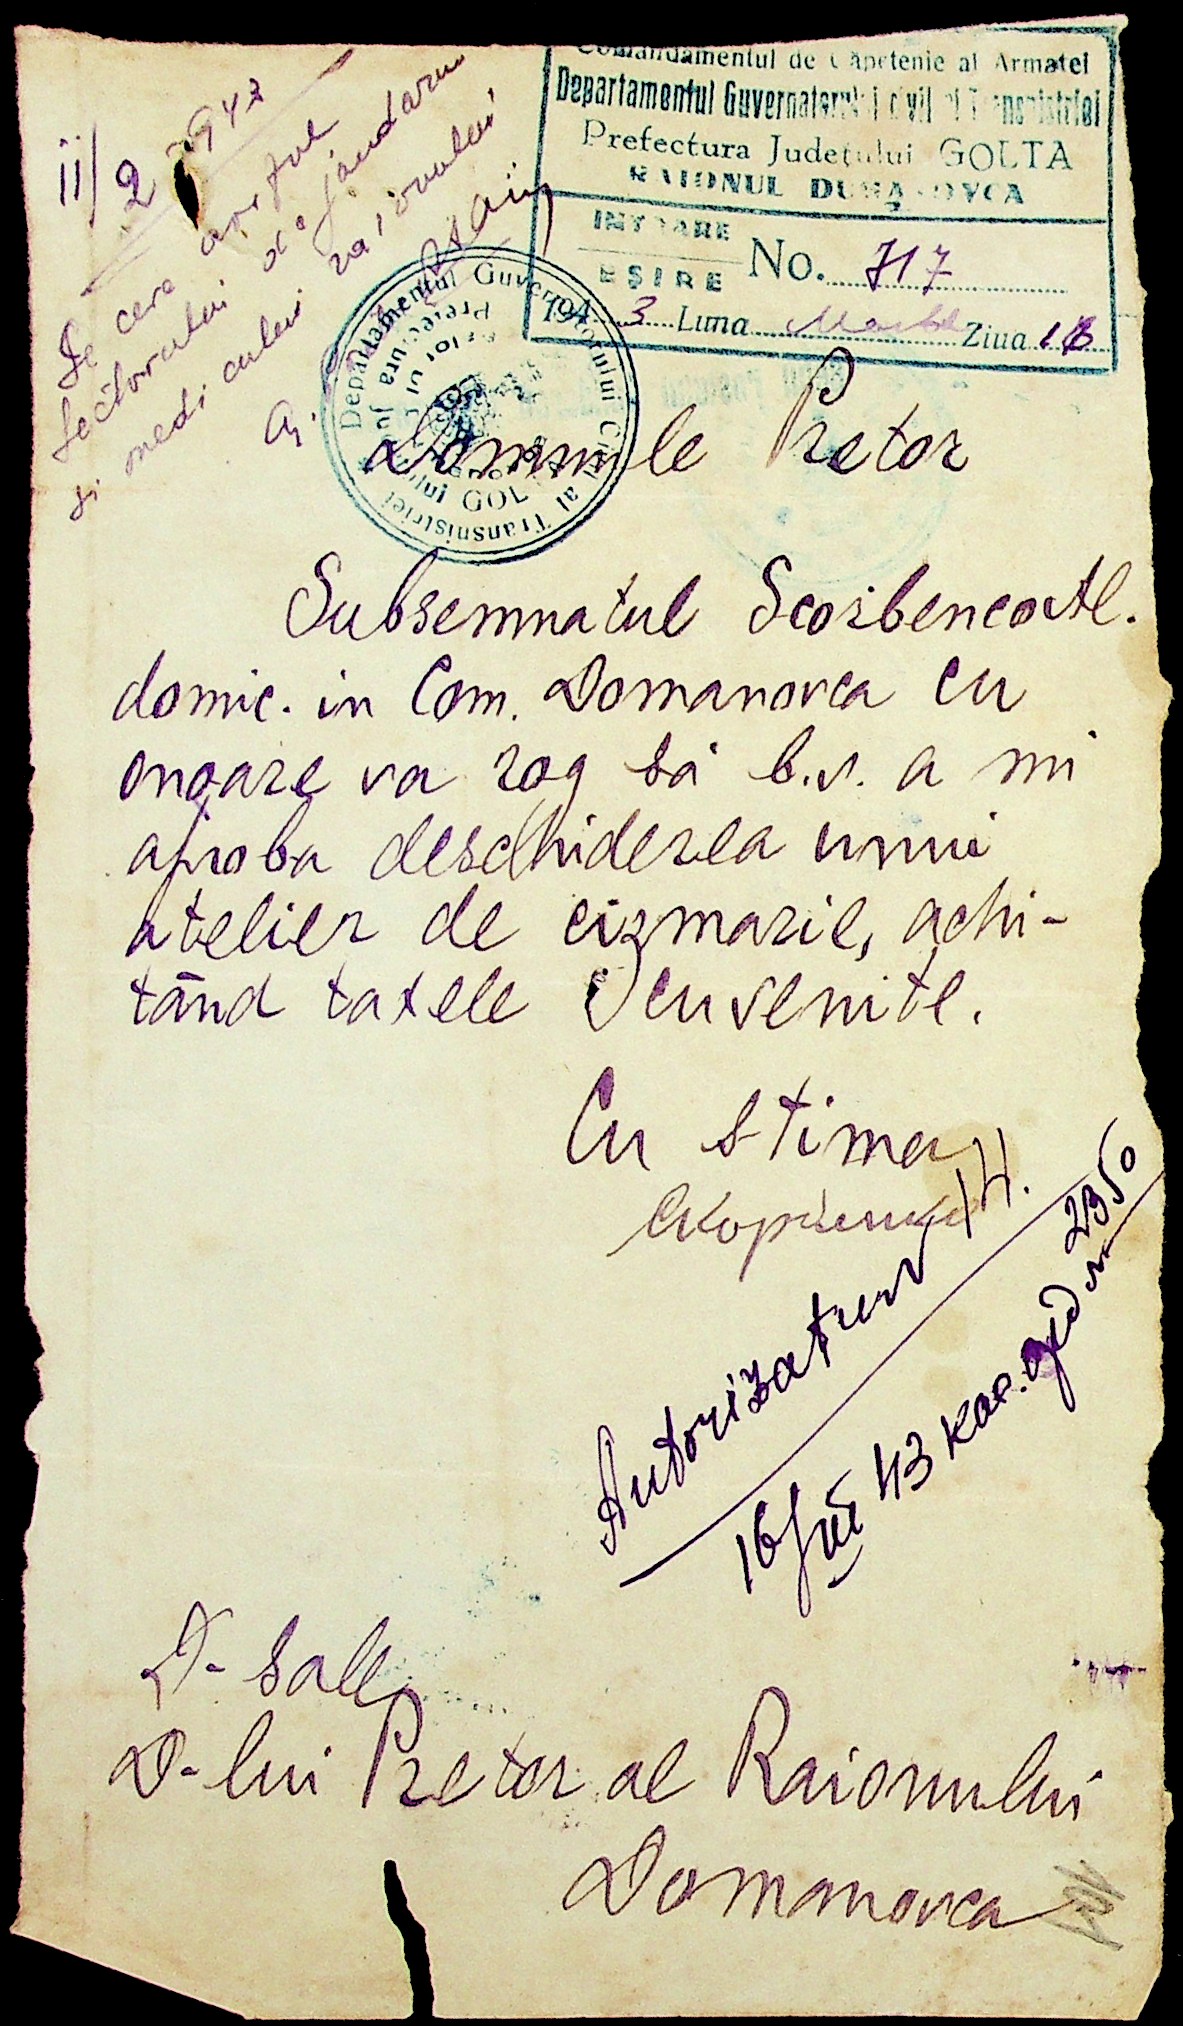 Comandamentul de Căpetenie al Armatei
Departamentul Guvernatorului civil al Transnistriei
Prefectura Județului GOLTA
RAIONUL DUMANOVCA
INTRARE
EȘIRE
No. 717
1943 Luna Martie Ziua 16
ii/2 943
Se cere avizul
sectorului de jandarmi
și medicului raionului
Departamentul Guvernatorului Civil al Transnistriei
Prefectura Județului GOLTA
Domnule Pretor
Subsemnatul Scorbenco Al.
domic. in Com. Domanovca cu
onoare va rog să b.v. a mi
aproba deschiderea unui
atelier de cizmarie, achi-
tănd taxele cuvenite.
Cu stima
Autorizatur
16/III 43 кас. орд № 2350
D-sale
D-lui Pretor al Raionului
Domanovca